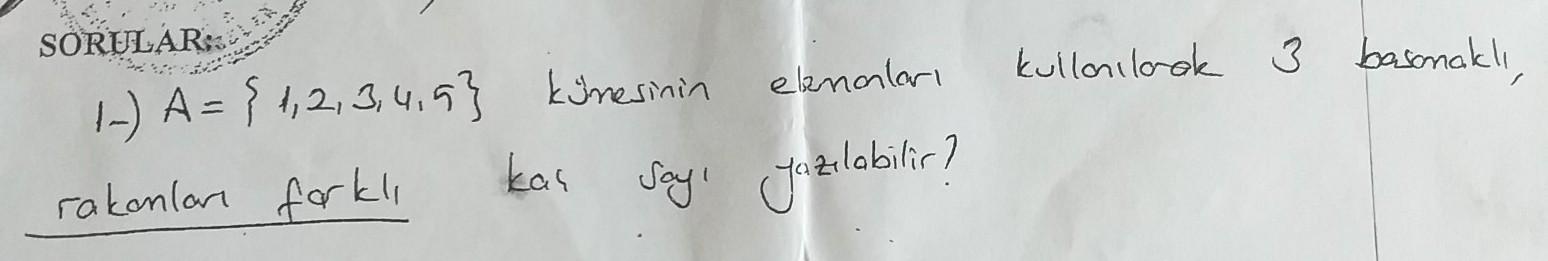 SORULAR:
1-) A = { 1, 2, 3, 4, 5 } kümesinin elemanları kullanılarak 3 basamaklı,
rakamları farklı kaç sayı yazılabilir?